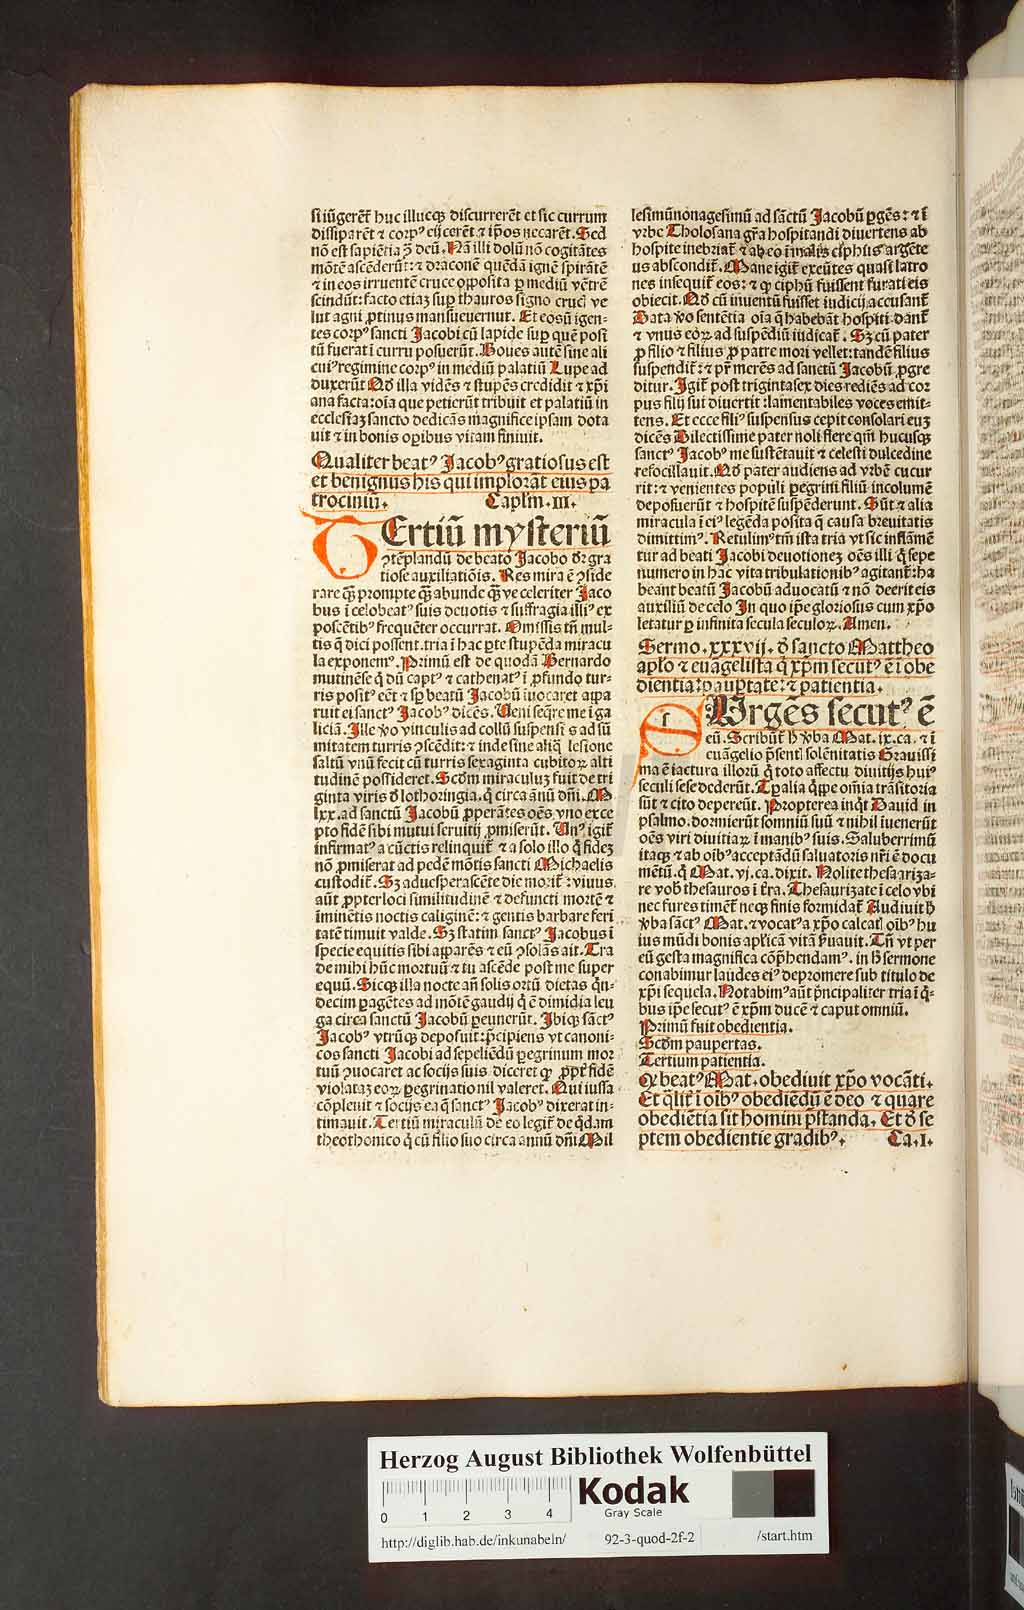 si iūgerēt̄ huc illucqꝫ discurrerēt et sic currum
dissiparēt ⁊ corpꝰ eijcerēt ⁊ ip̄os necarēt. Sed
nō est sapiētia ꝯ̄ deū. Nā illi dolū nō cogitātes
mōtē ascēderūt: ⁊ draconē quēdā ignē spirātē
⁊ in eos irruentē cruce oꝓposita ꝑ mediū vētrē
scindūt: facto etiaꝫ suꝑ thauros signo crucis ve
lut agni ꝓtinus mansueuernut. Et eos iūgen-
tes corpꝰ sancti Jacobi cū lapide suꝑ quē posi
tū fuerat ī curru posuerūt. Boues autē sine ali
cuiꝰ regimine corpꝰ in mediū palatiū Lupe ad
duxerūt Qd̄ illa vidēs ⁊ stupēs credidit ⁊ xp̄i
ana facta: oīa que petierūt tribuit et palatiū in
ecclesiaꝫ sancto dedicās magnifice ipsam dota
uit ⁊ in bonis oꝑibus vitam finiuit.
Qualiter beatꝰ Jacobꝰ gratiosus est
et benignus his qui implorāt eius pa
trociniū. Caplm̄. III.
TErtiū mysteriū
ꝯtēplandū de beato Jacobo dr̄ gra
tiose auxiliatiōis. Res mira ē ꝯside
rare qꝫ̄ prompte qꝫ̄ abunde qꝫ̄ ve celeriter Jaco
bus ī celo beatꝰ suis deuotis ⁊ suffragia illiꝰ ex
poscētibꝰ frequēter occurrat. Omissis tn̄ mul-
tis q̄ dici possent. tria ī hac ꝑte stupēda miracu
la exponemꝰ. Primū est de quodā Bernardo
mutinēse q̄ dū captꝰ ⁊ cathenatꝰ ī ꝓfundo tur-
ris positꝰ eēt ⁊ sꝑ beatū Jacobū īuocaret appa
ruit ei sanctꝰ Jacobꝰ dicēs. Veni seq̄re me ī ga
liciā. Jlle ꝟo vinculis ad collū suspensis ad sū
mitatem turris ꝯscēdit: ⁊ inde sine aliq̄ lesione
saltū vnū fecit cū turris sexaginta cubitoꝝ alti
tudinē possideret. Scd̄m miraculuꝫ fuit de tri
ginta viris d̄ lothoringia. q̄ circa ānū dn̄i. M
lxx. ad sanctū Jacobū ꝓperātes oēs vno exce
pto fidē sibi mutui seruitij ꝓmiserūt. Vnꝰ igit̄
infirmatꝰ a cūctis relinquit̄ ⁊ a solo illo q̄ fideꝫ
nō ꝓmiserat ad pedē mōtis sancti Michaelis
custodit̄. Sꝫ aduesperascēte die morit̄: viuus
aūt ꝓpter loci similitudinē ⁊ defuncti mortē ⁊
īminētis noctis caliginē: ⁊ gentis barbare feri
tatē timuit valde. Sꝫ statim sanctꝰ Jacobus ī
specie equitis sibi apparēs ⁊ eū ꝯsolās ait. Tra
de mihi hūc mortuū ⁊ tu ascēde post me super
equū. Sicqꝫ illa nocte an̄ solis ortū dietas q̄n-
decim ꝑagētes ad mōtē gaudij q̄ ē dimidia leu
ga circa sanctū Jacobū ꝑeunerūt. Jbiqꝫ sāctꝰ
Jacobꝰ vtrūqꝫ deposuit: p̄cipiens vt canoni-
cos sancti Jacobi ad sepeliēdū ꝑegrinum mor
tuū ꝯuocaret ac socijs suis diceret ꝙ ꝓpt̄ fidē
violataꝫ eoꝝ ꝑegrinatio nil valeret. Qui iussa
cōpleuit ⁊ socijs ea q̄ sanctꝰ Jacobꝰ dixerat in-
timauit. Tertiū miraculū de eo legit̄ de q̄dam
theothonico q̄ cū filio suo circa annū dn̄i Mil
lesimū nonagesimū ad sāctū Jacobū ꝑgēs: ⁊ ī
vrbe Tholosana gr̄a hospitandi diuertens ab
hospite inebriat̄ ⁊ ab eo ī malis ciphus argēte
us abscondit̄. Mane igit̄ exeūtes quasi latro
nes insequit̄ eos: ⁊ ꝙ ciphū fuissent furati eis
obiecit. Qd̄ cū inuentū fuisset iudicij accusant̄
Data ꝟo sentētia oīa q̄ habebāt hospiti dant̄
⁊ vnus eoꝝ ad suspēdiū iudicat̄. Sꝫ cū pater
ꝓ filio ⁊ filius ꝓ patre mori vellet: tandē filius
suspendit̄: ⁊ pr̄ merēs ad sanctū Jacobū ꝓgre
ditur. Jgit̄ post triginta sex dies rediēs ad cor
pus filij sui diuertit: lamentabiles voces emit-
tens. Et ecce filiꝰ suspensus cepit consolari euꝫ
dicēs Dilectissime pater noli flere qm̄ hucusqꝫ
sanctꝰ Jacobꝰ me sustētauit ⁊ celesti dulcedine
refocillauit. Qd̄ pater audiens ad vrbē cucur
rit: ⁊ venientes populi ꝑegrini filiū incolumē
deposuerūt ⁊ hospitē suspēderunt. Sūt ⁊ alia
miracula ī eiꝰ legēda posita q̄ causa breuitatis
dimittimꝰ. Retulimꝰ tn̄ ista tria vt sic inflamē
tur ad beati Jacobi deuotioneꝫ oēs illi q̄ sepe
numero in hac vita tribulationibꝰ agitant̄: ha
beant beatū Jacobū aduocatū ⁊ nō deerit eis
auxiliū de celo Jn quo ip̄e gloriosus cum xp̄o
letatur ꝑ infinita secula seculoꝝ. Amen.
Sermo. xxxvij. d̄ sancto Mattheo
aplo ⁊ euāgelista q̄ xp̄m secutꝰ ē ī obe
dientia: pauꝑtate: ⁊ patientia.
SUrgēs secutꝰ ē
eū. Scribūt̄ h̄ ꝟba Mat. ix. ca. ⁊ ī
euāgelio p̄senti solēnitatis Grauissi
ma ē iactura illorū q̄ toto affectu diuitijs huiꝰ
seculi sese dederūt. Tꝑalia q̄ppe om̄ia trāsitoria
sūt ⁊ cito depereūt. Propterea inq̄t Dauid in
psalmo. dormierūt somniū suū ⁊ nihil īuenerūt
oēs viri diuitiaꝝ ī manibꝰ suis. Saluberrimū
itaqꝫ ⁊ ab oībꝰ acceptādū saluatoris nr̄i ē docu
mētū. q̄ Mat. vj. ca. dixit. Nolite thesauriza-
re vob̄ thesauros ī t̄ra. Thesaurizate ī celo vbi
nec fures timēt̄ neqꝫ finis formidat̄ Audiuit h̄
ꝟba sāctꝰ Mat. ⁊ vocatꝰ a xp̄o calcatis oībꝰ hu
ius mūdi bonis apl̄icā vitā s̄uauit. Tn̄ vt per
eū gesta magnifica cōp̄hendamꝰ. in h̄ sermone
conabimur laudes eiꝰ depromere sub titulo de
xp̄i sequela. Notabimꝰ aūt p̄ncipaliter tria ī q̄-
bus ip̄e secutꝰ ē xp̄m ducē ⁊ caput omniū.
Primū fuit obedientia.
Scd̄m paupertas.
Tertium patientia.
Qꝫ beatꝰ Mat. obediuit xp̄o vocāti.
Et q̄lit̄ ī oībꝰ obediēdū ē deo ⁊ quare
obediētia sit homini p̄standa. Et d̄ se
ptem obedientie gradibꝰ. Ca. I.
Herzog August Bibliothek Wolfenbüttel
0 1 2 3 4
Kodak
Gray Scale
http://diglib.hab.de/inkunabeln/ 92-3-quod-2f-2 /start.htm